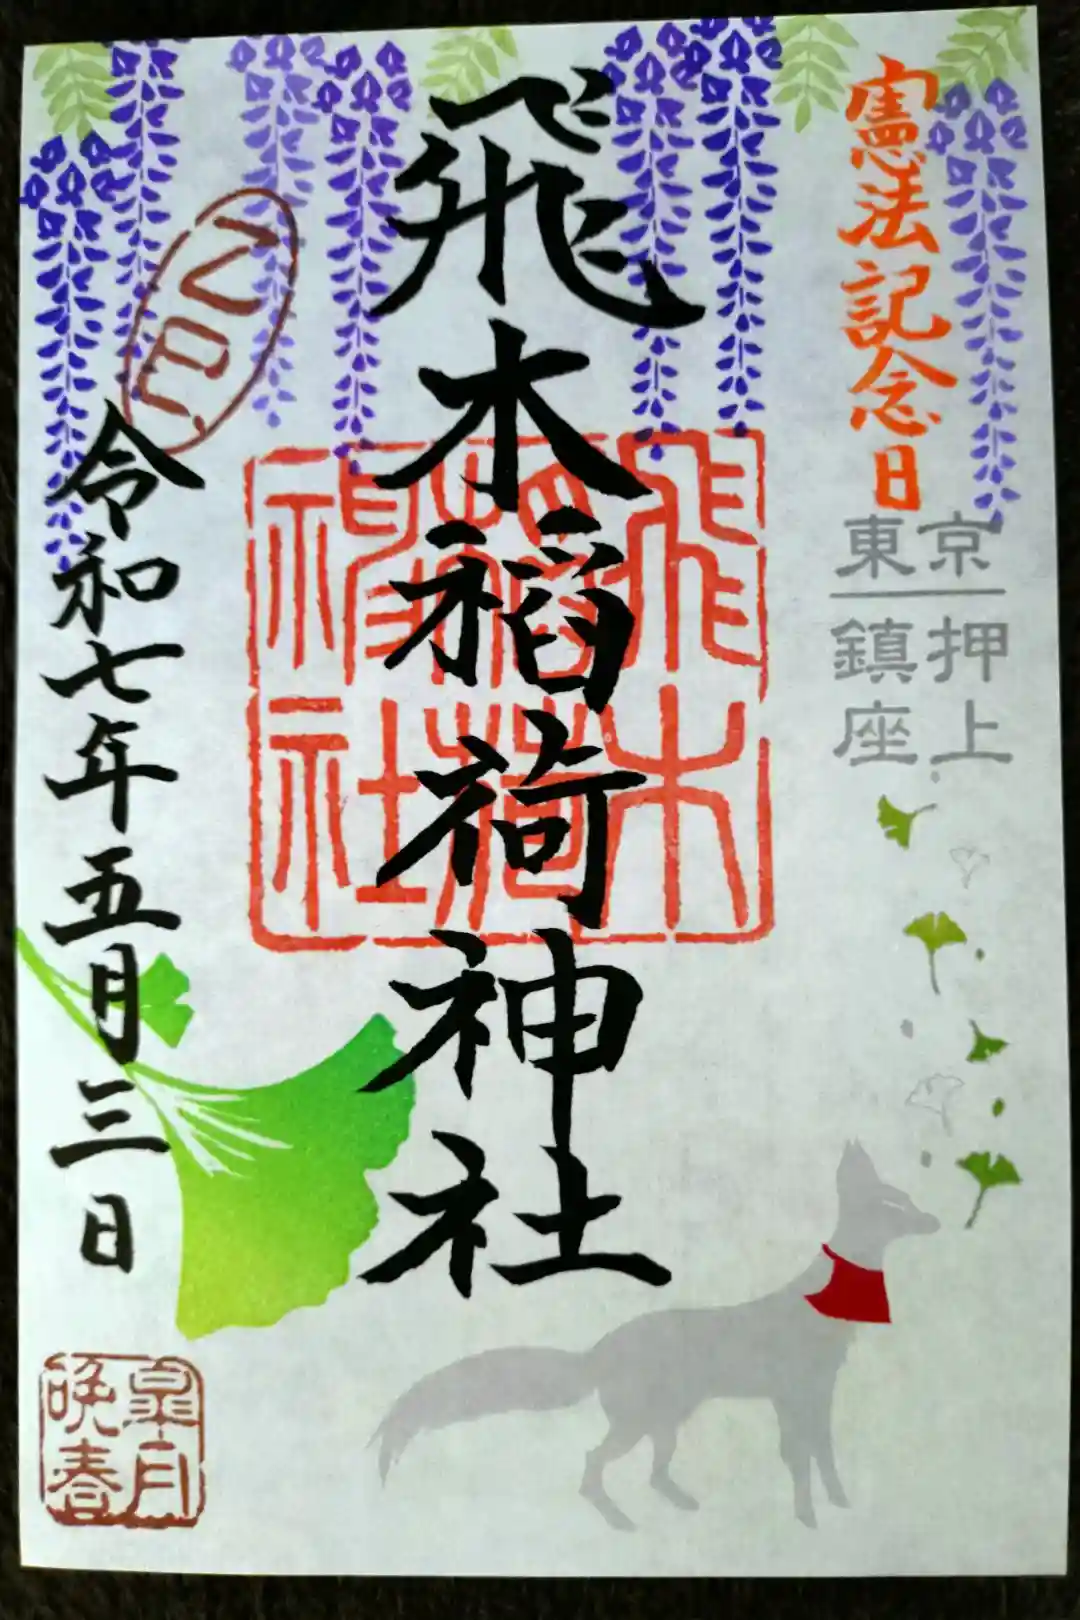 憲法記念日
東京
押上
鎮座
飛木稲荷神社
飛木稲荷神社
乙巳
令和七年五月三日
皐月
晩春